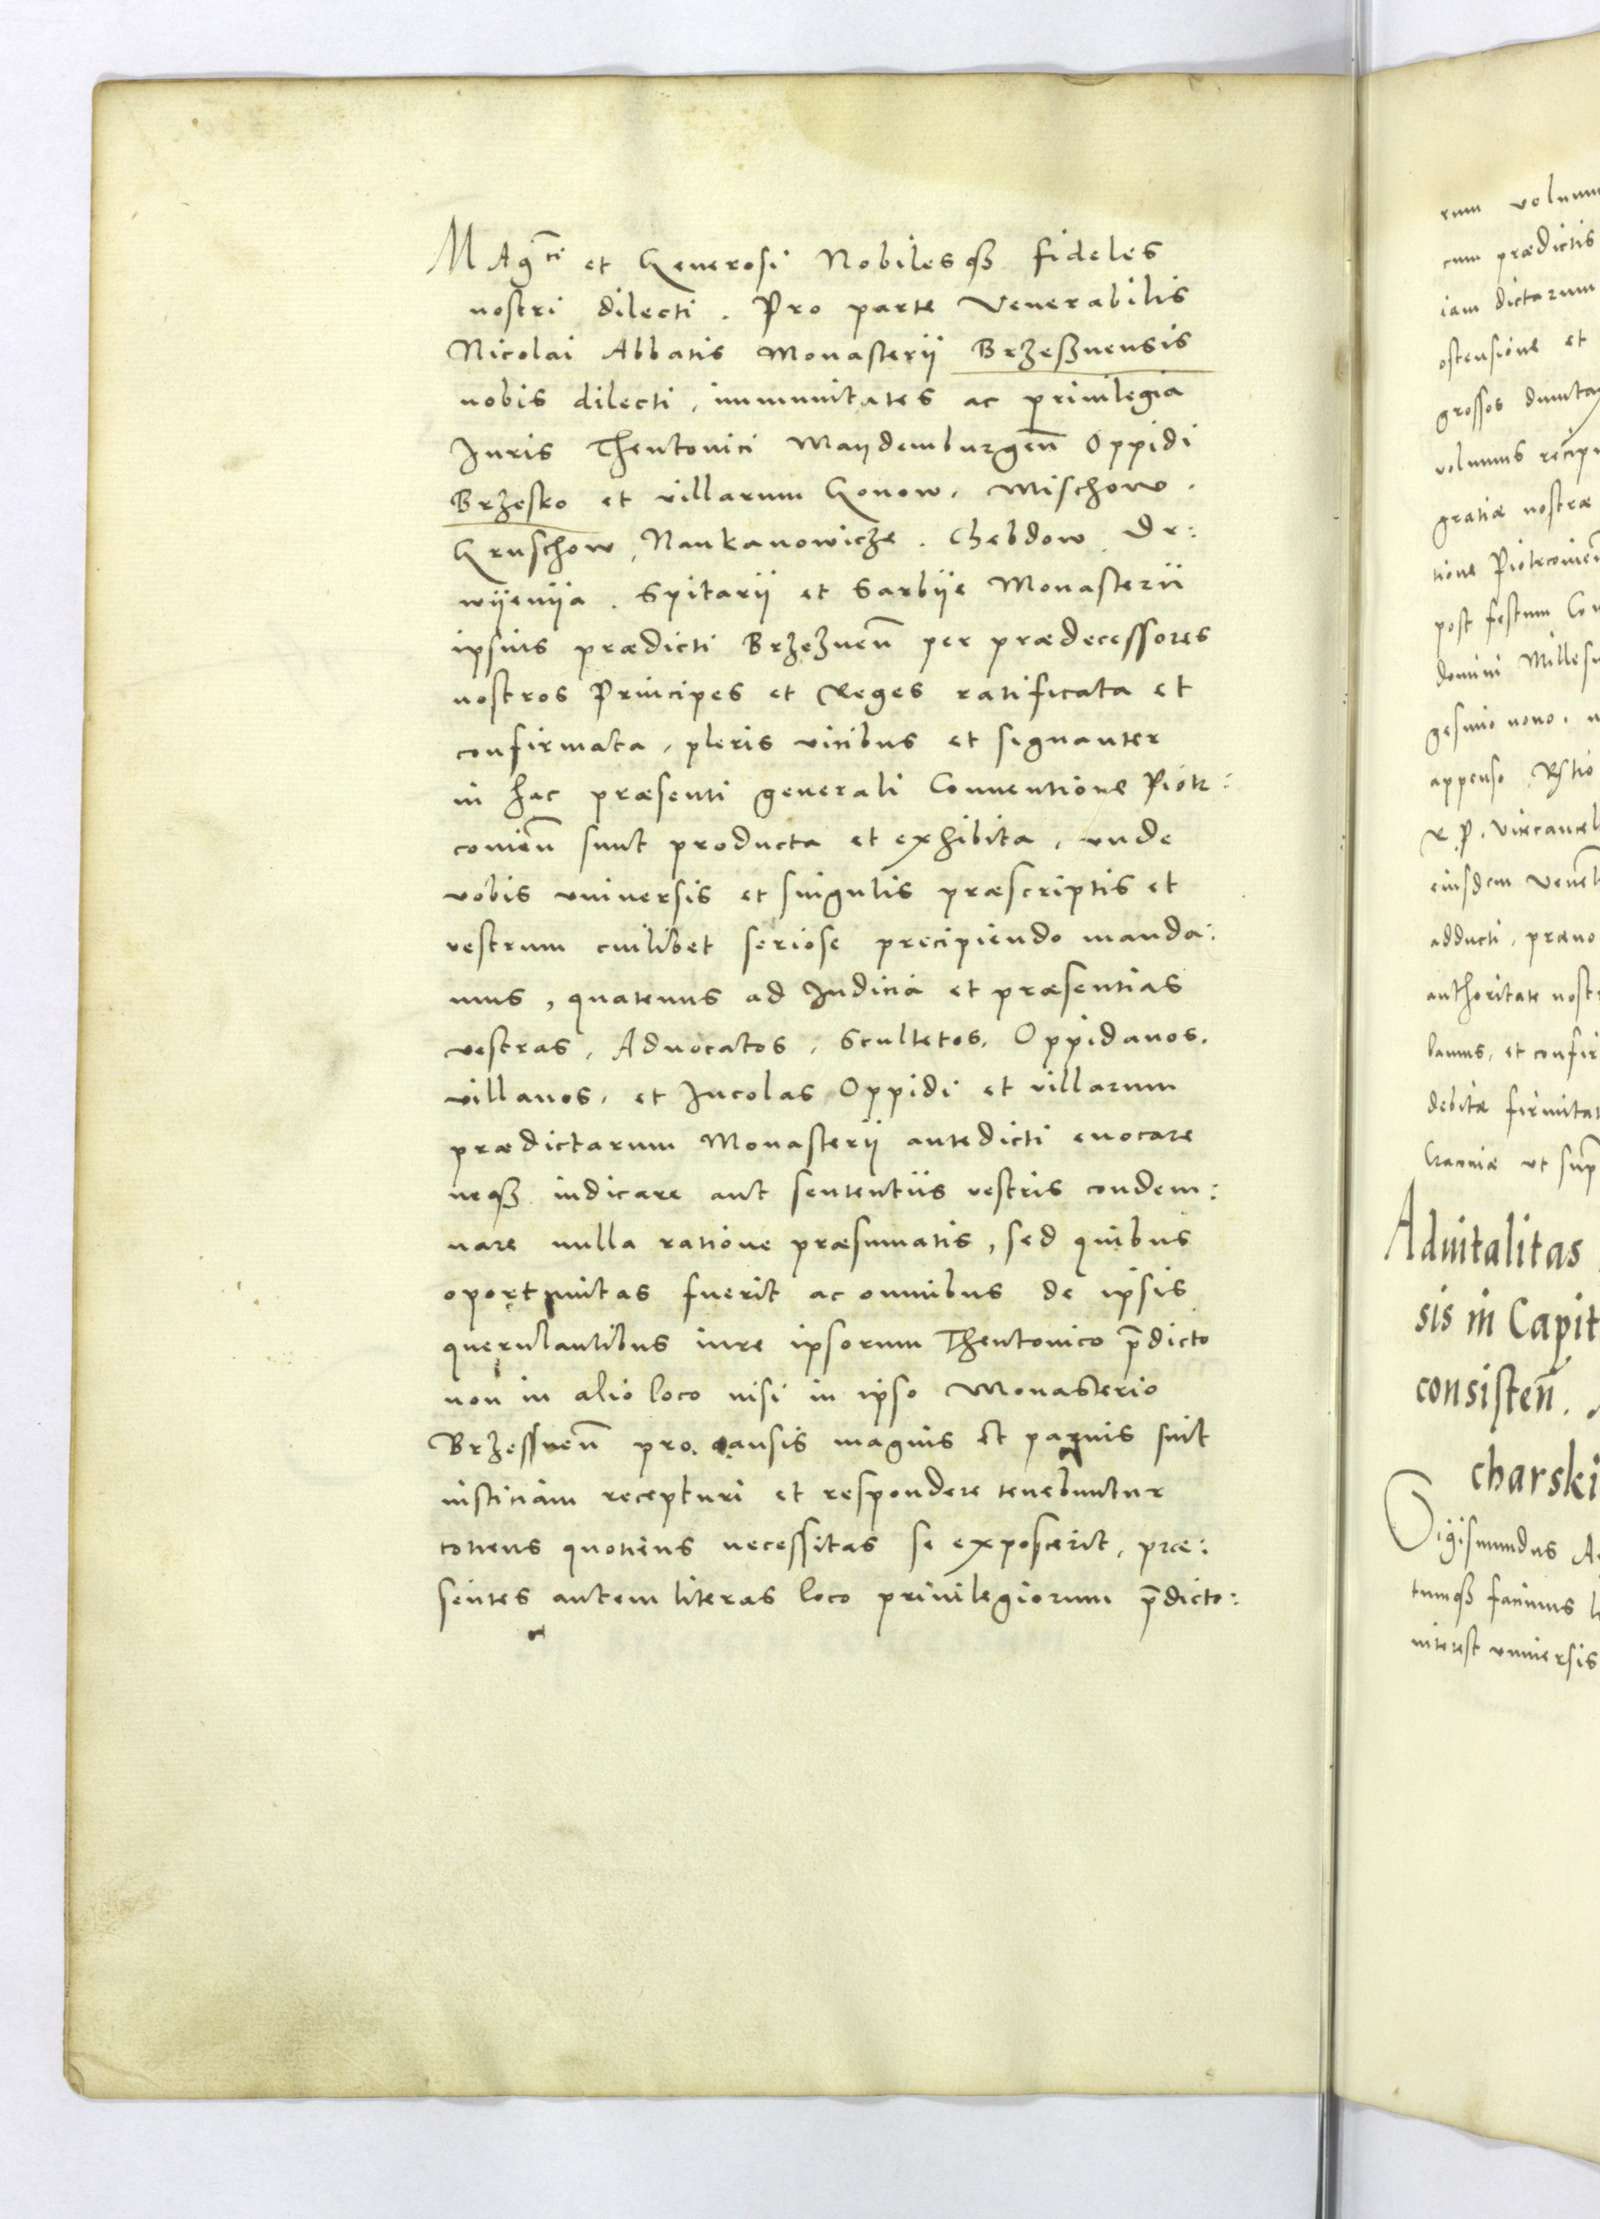 MAg^ci et Generosi Nobilesqȝ fideles
nostri dilecti. Pro parte Venerabilis
Nicolai Abbatis Monasterii Brzeßnensis
nobis dilecti, immunitates ac privilegia
Juris Theutonici Maydemburgen̄ Oppidi
Brzesko et villarum Gonow, Mischow.
Gruschow, Nankanowicze. Chebdow, Dr:
wyenya. Spitarii et Sarbiie Monasterii
ipsius prædicti Brzeznen̄ per prædecessores
nostros Principes et Reges ratificata et
confirmata, pleris vicibus et signanter
in hac præsenti generali Conventione Piotr:
covien̄ sunt producta et exhibita, vnde
vobis vniversis et singulis præscriptis et
vestrum cuilibet seriose precipiendo manda:
mus, quatenus ad Iudicia et præsentias
vestras, Advocatos, Scultetos, Oppidanos,
villanos, et Incolas Oppidi et villarum
prædictarum Monasterii antedicti evocare
neqȝ iudicare aut sententiis vestris condem:
nare nulla ratione præsumatis, sed quibus
oportunitas fuerit ac omnibus de ipsis
querulantibus iure ipsorum Theutonico p̄dicto
non in alio loco nisi in ipso Monasterio
Brzessnen̄ pro causis magnis et parvis sint
iusticiam recepturi et respondere tenebuntur
totiens quotiens necessitas se exposcerit, præ:
sentes autem literas loco privilegiorum p̄dicto:
rum volum
cum prædictis
iam dictarum
ostensione et
grossos dunta
volumus recipi
gratiæ nostræ
tione Piotrcovien̄
post festum Co
domini Milles
gesimo nono.
appenso
R. P. Vicecancel
eiusdem Venel
adducti, præno
authoritate nost
bamus, et confir
debitæ firmitat
Cracoviæ ut sup
Advitalitas
sis in Capit
consisten̄.
charski
Sigismundus A
tumqȝ facimus
interest vniversis